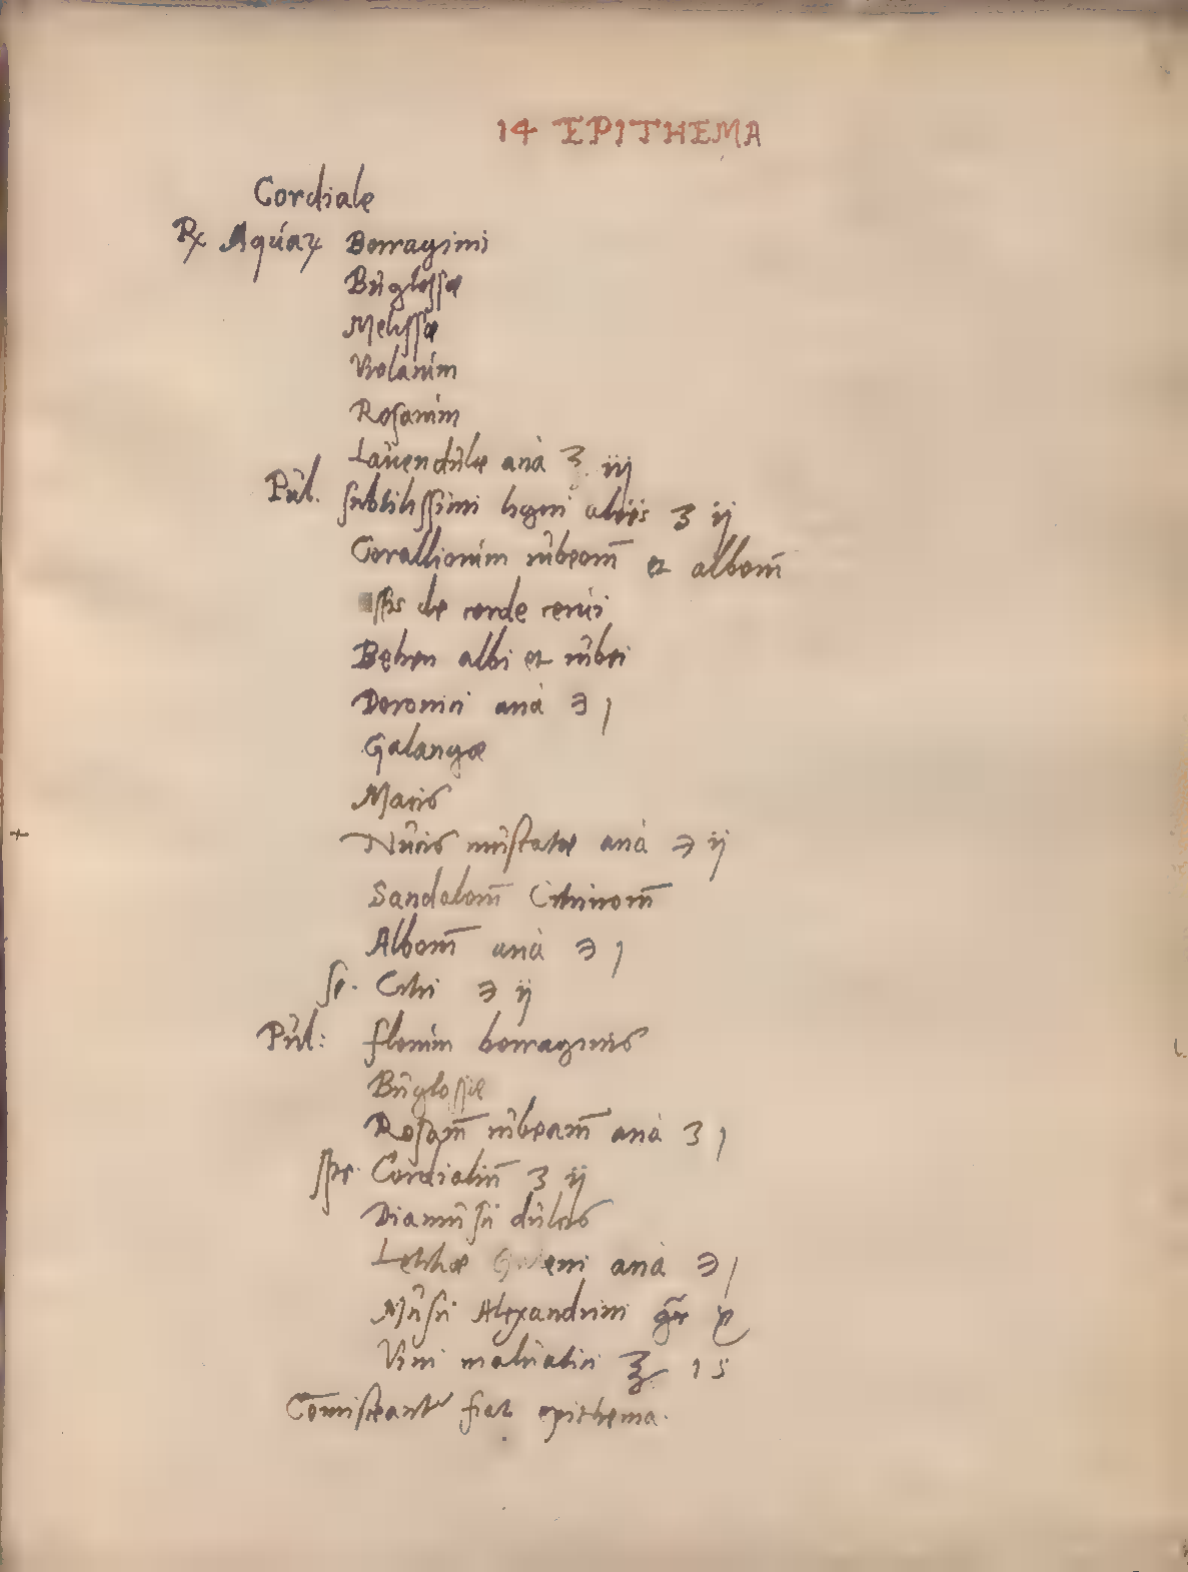 14 EPITHEMA
Cordiale
℞ Aquaꝝ Borragini
Buglossæ
Melissæ
Violarum
Rosarum
Lauendulæ ana ℥ iij
Pul. subtilissimi ligni aloës ʒ ij
Coralliorum rubeorū et alborū
de corde cerui
Behen albi et rubei
Doronici ana ℈ j
Galangæ
Macis
Nucis muscatæ ana ℈ ij
Sandalorū Citrinorū
Alborū ana ℈ j
se. Citri ℈ ij
Pul: florum borraginis
Buglossæ
Rosarū rubearū ana ʒ j
spe. Cordialiū ʒ ij
Diamusci dulcis
Letitiæ Galeni ana ℈ j
Musci Alexandrini gr̃
Vini maluatici ℥ 1 s
Com̄isceantur fiat epithema.